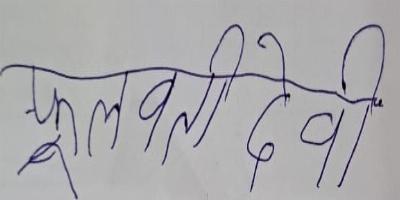 फूलवती देवी